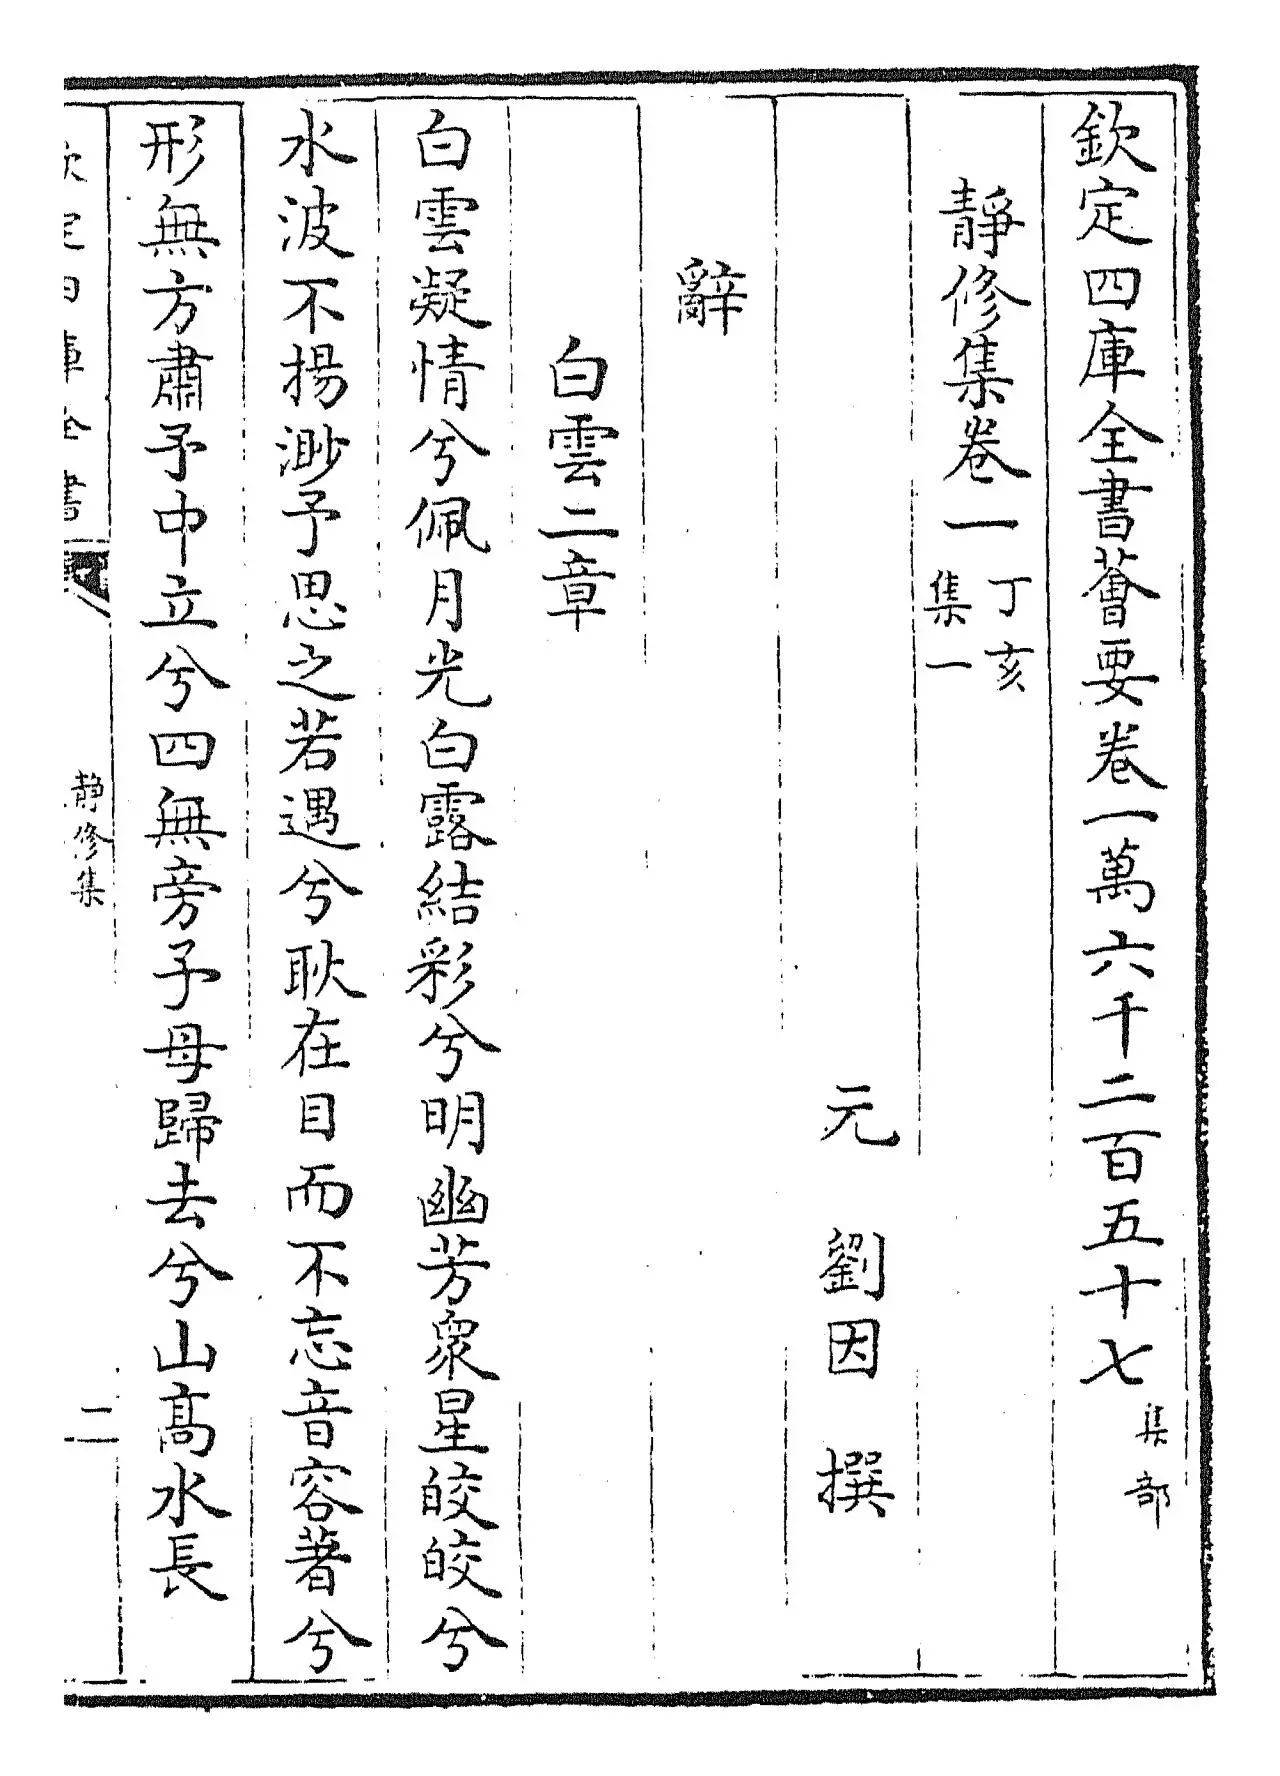 欽定四庫全書薈要卷一萬六千二百五十七集部
靜修集卷一丁亥集一
元　劉因　撰
辭
白雲二章
白雲凝情兮佩月光白露結彩兮明幽芳衆星皎皎兮
水波不揚渺予思之若遇兮耿在目而不忘音容著兮
形無方肅予中立兮四無旁予母歸去兮山髙水長
欽定四庫全書
靜修集
二